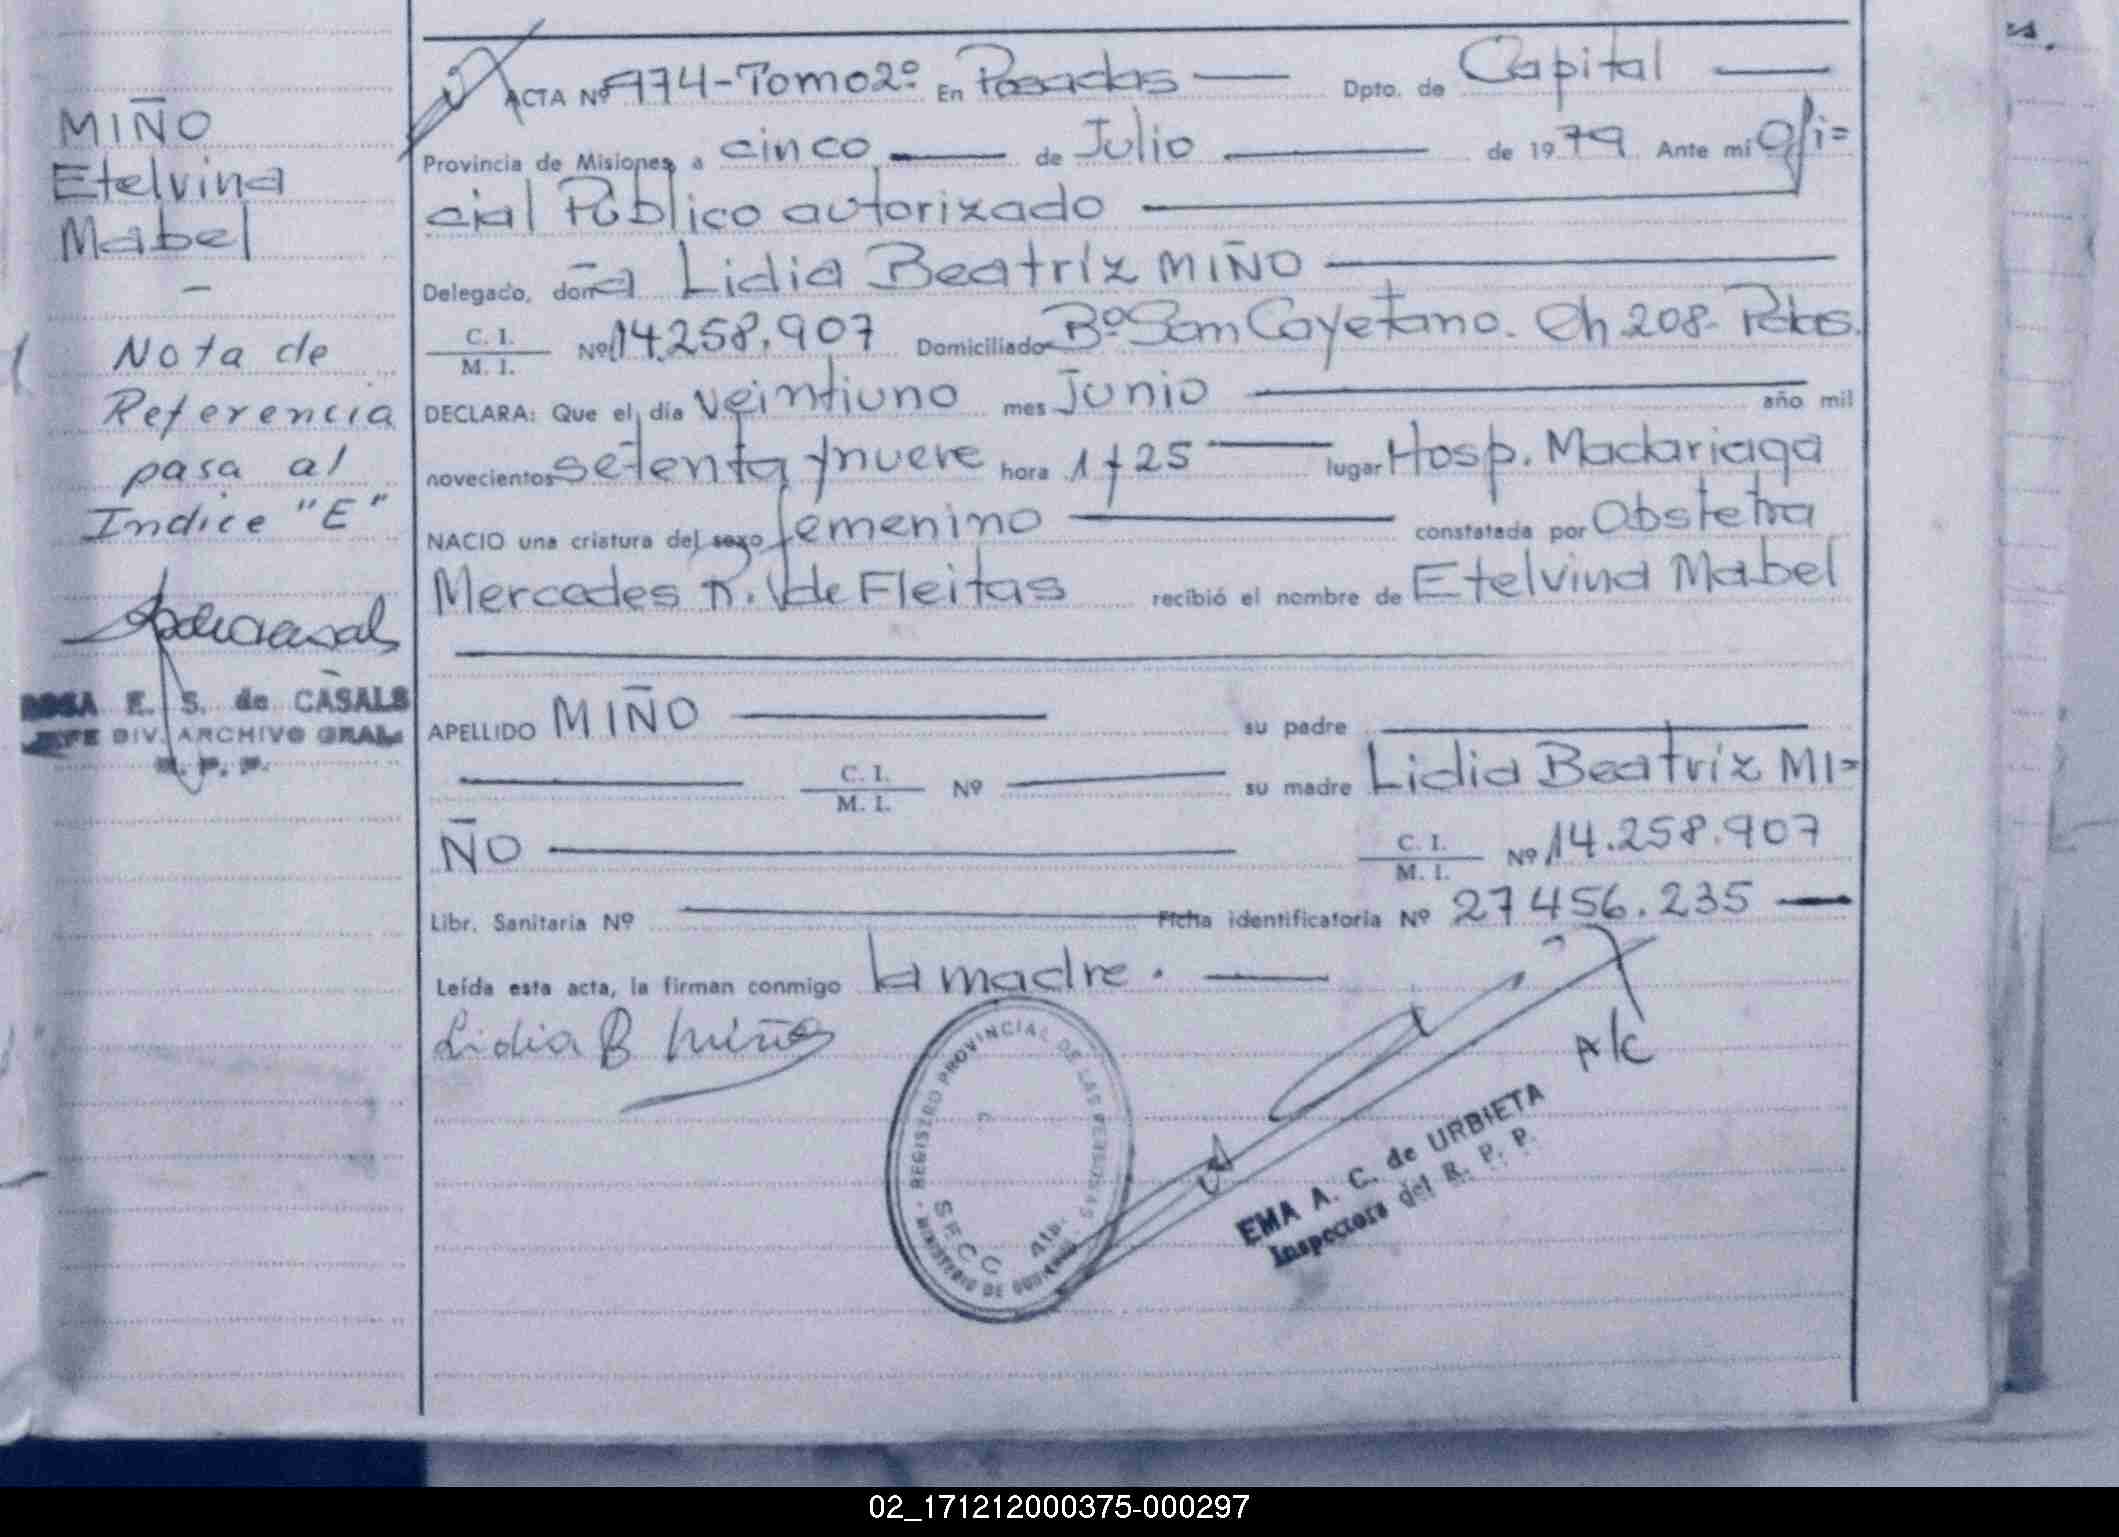 MIÑO
Etelvina
Mabel
—
Nota de
Referencia
pasa al
Indice "E"
ROSA E. S. de CASALS
JEFE DIV. ARCHIVO GRAL.
R. P. P.
ACTA Nº 974-Tomo 2º En Posadas — Dpto. de Capital —
Provincia de Misiones, a cinco — de Julio — de 1979 Ante mí Ofi=
cial Público autorizado —
Delegado, doña Lidia Beatríz MIÑO —
C. I. / M. I. Nº 14.258.907 Domiciliado Bº San Cayetano. Ch 208- Pdas.
DECLARA: Que el día veintiuno mes Junio — año mil
novecientos setenta y nueve hora 1 y 25 — lugar Hosp. Madariaga
NACIO una criatura del sexo femenino — constatada por Obstetra
Mercedes R. V de Fleitas recibió el nombre de Etelvina Mabel
—
APELLIDO MIÑO — su padre —
— C. I. / M. I. Nº — su madre Lidia Beatriz MI=
ÑO — C. I. / M. I. Nº 14.258.907
Libr. Sanitaria Nº — Ficha identificatoria Nº 27456.235 —
Leída esta acta, la firman conmigo la madre. —
Lidia B Miño
A/C
REGISTRO PROVINCIAL DE LAS PERSONAS
MINISTERIO DE GOBIERNO
SECC
EMA A. C. de URBIETA
Inspectora del R. P. P.
02_171212000375-000297